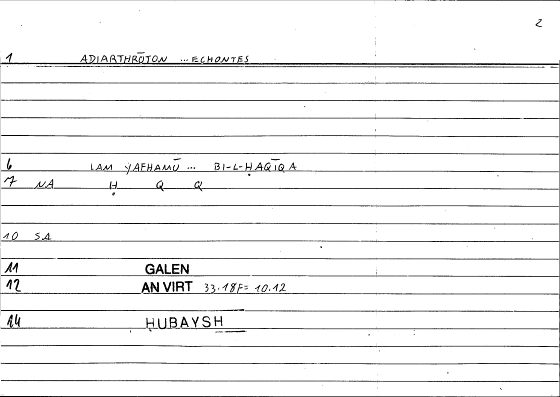 2
1 ADIARTHRŌTON ... ECHONTES
6 LAM YAFHAMŪ ... BI-L-ḤAQĪQA
7 NA Ḥ Q Q
10 SA
11 GALEN
12 AN VIRT 33.18F= 10.12
14 ḤUBAYSH